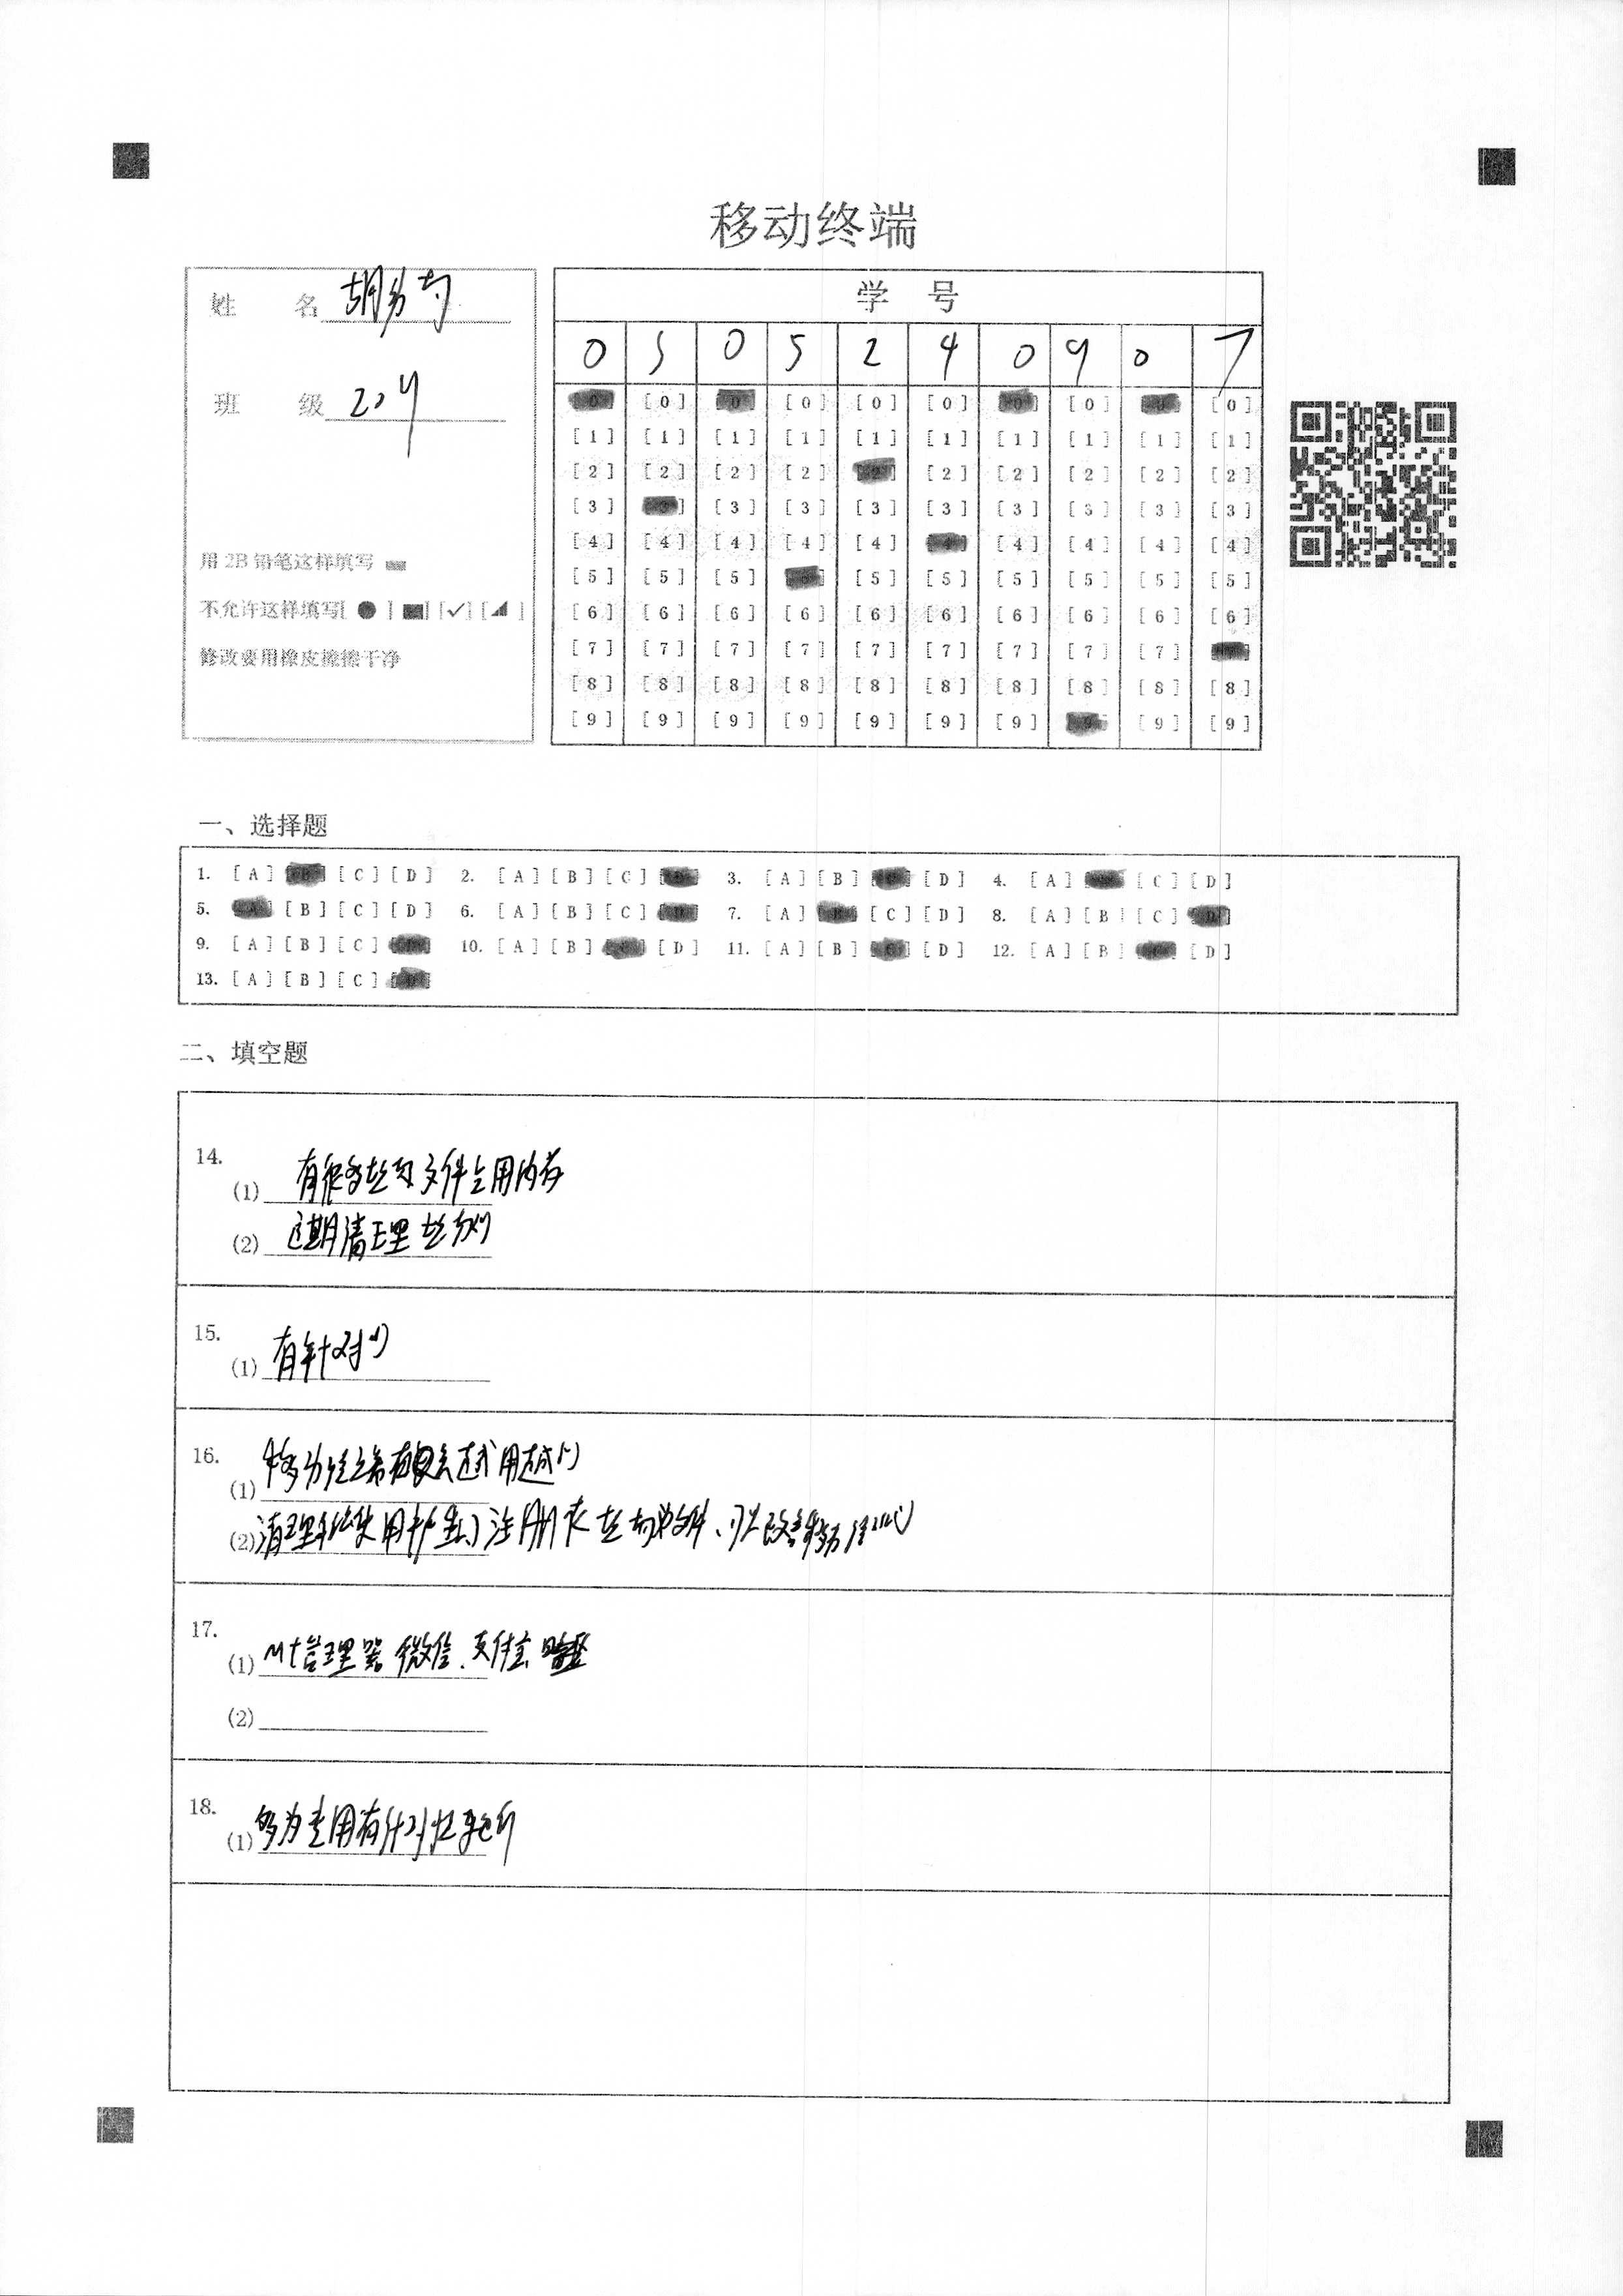 移动终端
姓 名 胡
班 级 209
用 2B 铅笔这样填写
不允许这样填写[ ● ] [■] [✓] [◢ ]
修改要用橡皮擦擦干净
学 号
0 3 0 5 2 4 0 9 0 7
[0] [0] [0] [0] [0] [0] [0] [0] [0] [0]
[1] [1] [1] [1] [1] [1] [1] [1] [1] [1]
[2] [2] [2] [2] [2] [2] [2] [2] [2] [2]
[3] [3] [3] [3] [3] [3] [3] [3] [3] [3]
[4] [4] [4] [4] [4] [4] [4] [4] [4] [4]
[5] [5] [5] [5] [5] [5] [5] [5] [5] [5]
[6] [6] [6] [6] [6] [6] [6] [6] [6] [6]
[7] [7] [7] [7] [7] [7] [7] [7] [7] [7]
[8] [8] [8] [8] [8] [8] [8] [8] [8] [8]
[9] [9] [9] [9] [9] [9] [9] [9] [9] [9]
一、选择题
1. [A] [B] [C] [D] 2. [A] [B] [C] [D] 3. [A] [B] [C] [D] 4. [A] [B] [C] [D]
5. [A] [B] [C] [D] 6. [A] [B] [C] [D] 7. [A] [B] [C] [D] 8. [A] [B] [C] [D]
9. [A] [B] [C] [D] 10. [A] [B] [C] [D] 11. [A] [B] [C] [D] 12. [A] [B] [C] [D]
13. [A] [B] [C] [D]
二、填空题
14.
(1) 有很多垃圾文件占用内存
(2) 定期清理垃圾
15.
(1) 有针对
16.
(1) 移动终端 越用越
(2) 清理 使用 注册表 垃圾文件、可以改善
17.
(1) Mt管理器 微信、支付宝
(2)
18.
(1) 多为专用有针对性